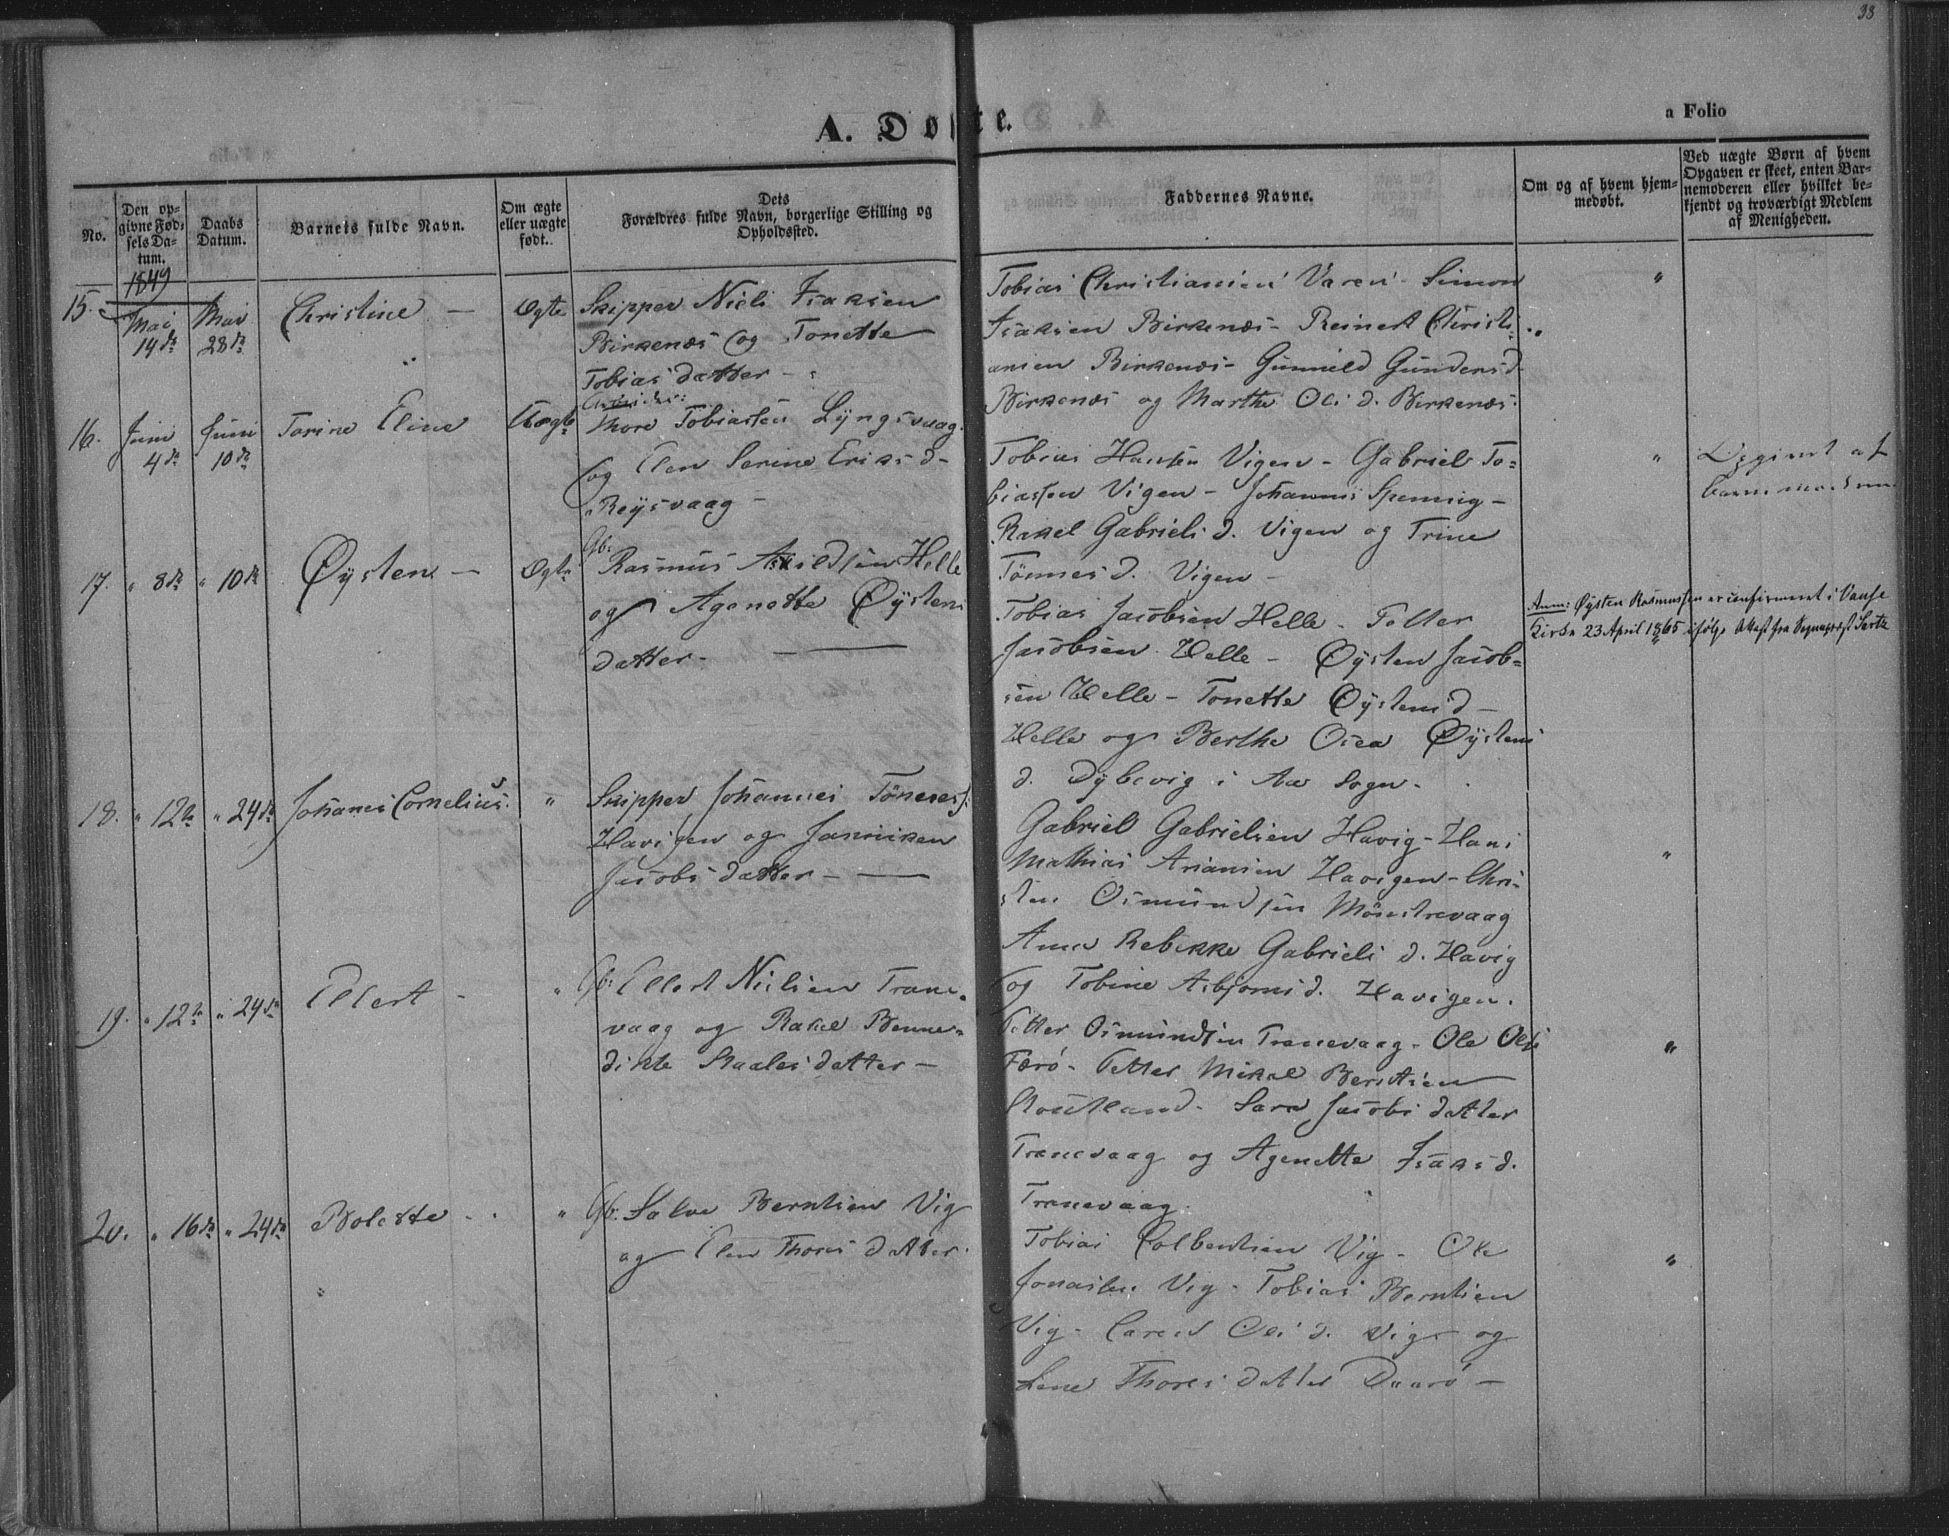 38
A. Døbte.
a Folio
No.
Den op-
givne Fød-
sels Da-
tum.
Daabs
Datum.
Barnets fulde Navn.
Om ægte
eller uægte
født.
Dets
Forældres fulde Navn, borgerlige Stilling og
Opholdssted.
Faddernes Navne.
Om og af hvem hjem-
medøbt.
Ved uægte Børn af hvem
Opgaven er skeet, enten Bar-
nemoderen eller hvilket be-
kjendt og troværdigt Medlem
af Menigheden.
1849
15. Mai 14de Mai 28de Christine — Ægte
Skipper Niels Isaksen
Birkenæs og Tonette
Tobiasdatter —
Tobias Christiansen Varen - Simon
Isaksen Birkenæs - Reinert Christi-
ansen Birkenæs - Gunnild Gundersd.
Birkenæs og Marthe Olisd. Birkenæs.
16. Juni 4de Juni 10de Torine Eline Uægte
Thore Tobiassen Lyngsvaag
og Elen Serine Eriksd -
Reysvaag —
Tobias Hansen Vigen - Gabriel To=
biassen Vigen - Johannes Spennig -
Rakel Gabrielsd. Vigen og Trine
Tønnesd. Vigen —
" Opgivet af
barnemoderen
17. " 8de " 10de Øysten — Ægte
Gb: Rasmus Askildsen Helle
og Agenette Øystens
datter - —
Tobias Jacobsen Helle - Petter
Jacobsen Helle - Øysten Jacob=
sen Helle - Tonette Øystensd —
Helle og Berthe Osea Øystens
d. Dybevig i Aa Sogn -
Anm: Øysten Rasmussen er confirmeret i Vanse
Kirke 23 April 1865 ifølge Attest fra Sognepræst
18. " 12te " 24de Johanes Cornelius. "
Skipper Johannes Tønesess:
Havigen og Janniken
Jacobsdatter — —
Gabriel Gabrielsen Havig - Hans
Mathias Ariansen Havigen - Chri-
sten Osmundsen
Anne Rebekke Gabrielsd. Havig
og Tobine Asbjornsd. Havigen.
"
19. " 12te " 24de Ellert - "
Gb: Ellert Nielsen Trane-
vaag og Rakel Benne=
dikte Staalesdatter —
Petter Osmundsen Tranevaag - Ole Ols:
Færø - Petter Mikal Berntsen
Skoutland - Sara Jacobsdatter
Tranevaag og Agenette Isaksd.
Tranevaag.
"
20. " 16de " 24de Bolette - "
Gb: Salve Berntsen Vig
og Elen Thoresdatter.
Tobias Colbentsen Vig - Ole
Jonassen Vig - Tobias Berntsen
Vig - Olisd. Vig og
Lene Thoresdatter Daarø —
"